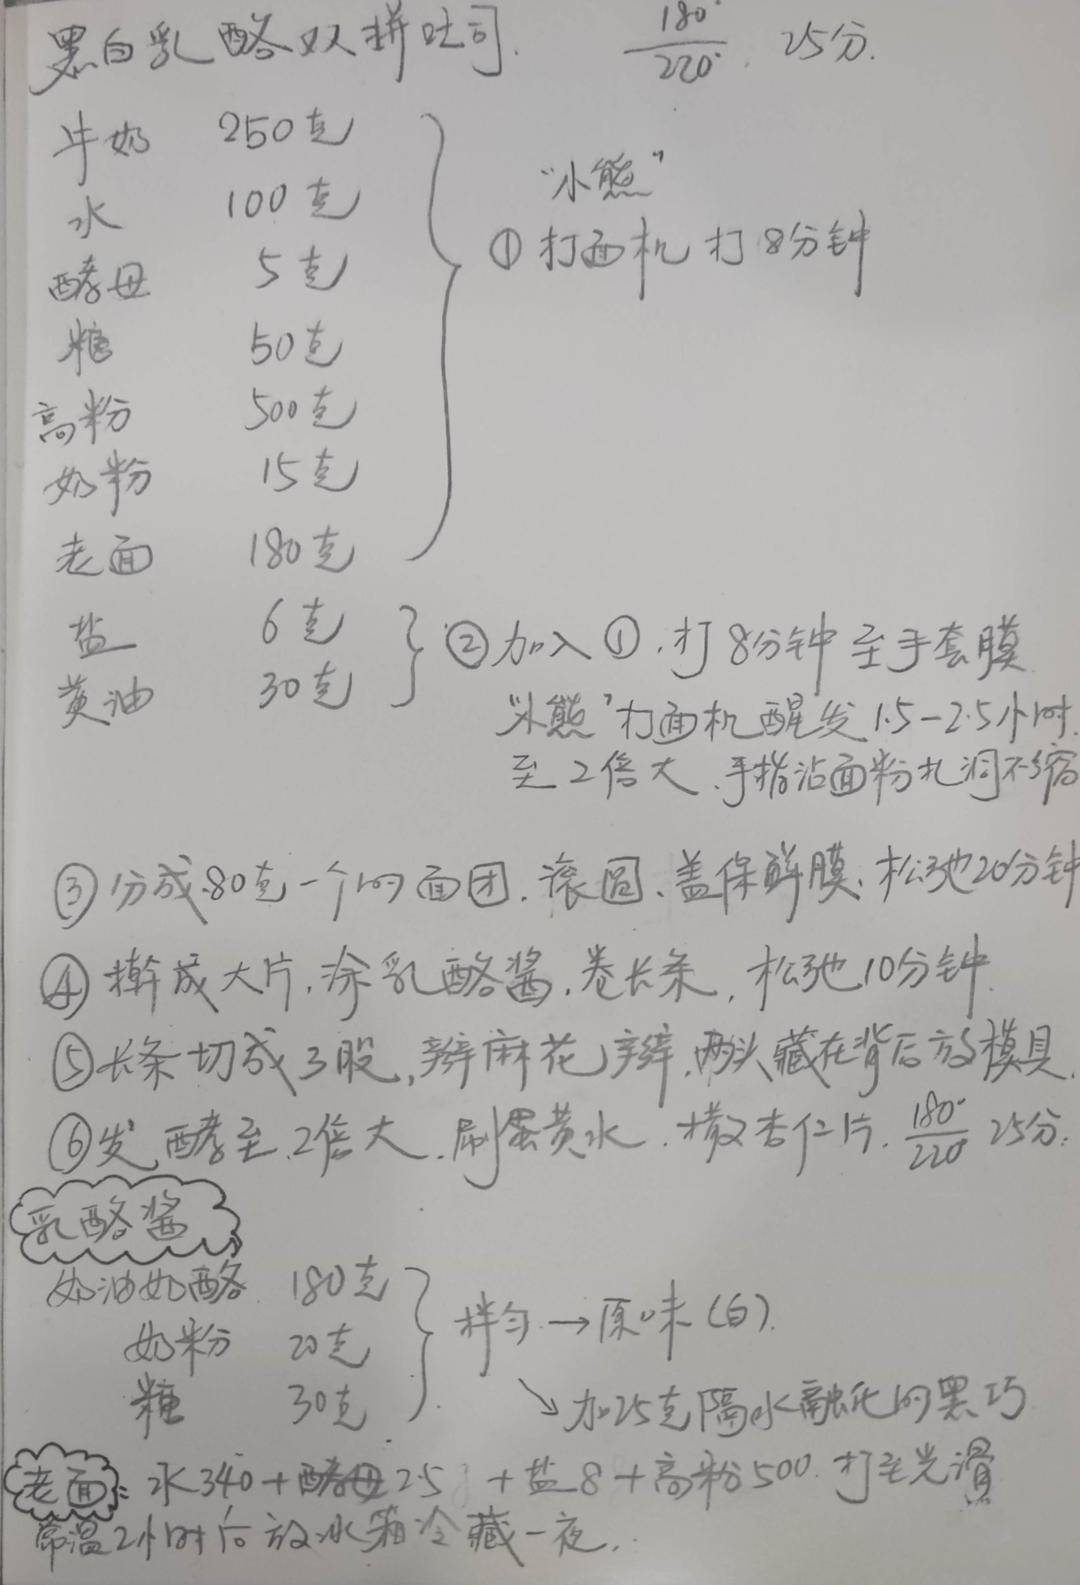 黑白乳酪双拼吐司. 180°/220°. 25分.
牛奶 250克
水 100克
酵母 5克
糖 50克
高粉 500克
奶粉 15克
老面 180克
"小熊"
①打面机打8分钟
盐 6克
黄油 30克
②加入①.打8分钟至手套膜
"小熊"打面机醒发1.5-2.5小时.
至2倍大.手指沾面粉扎洞不缩
③分成80克一个的面团.滚圆、盖保鲜膜、松弛20分钟
④擀成大片.涂乳酪酱.卷长条,松弛10分钟
⑤长条切成3股,辫麻花辫.两头藏在背后放模具.
⑥发酵至2倍大.刷蛋黄水.撒杏仁片.180°/220° 25分.
乳酪酱
奶油奶酪 180克
奶粉 20克
糖 30克
拌匀→原味(白).
↘加25克隔水融化的黑巧
老面: 水340+酵母2.5+盐8+高粉500.打至光滑
常温2小时后放冰箱冷藏一夜.